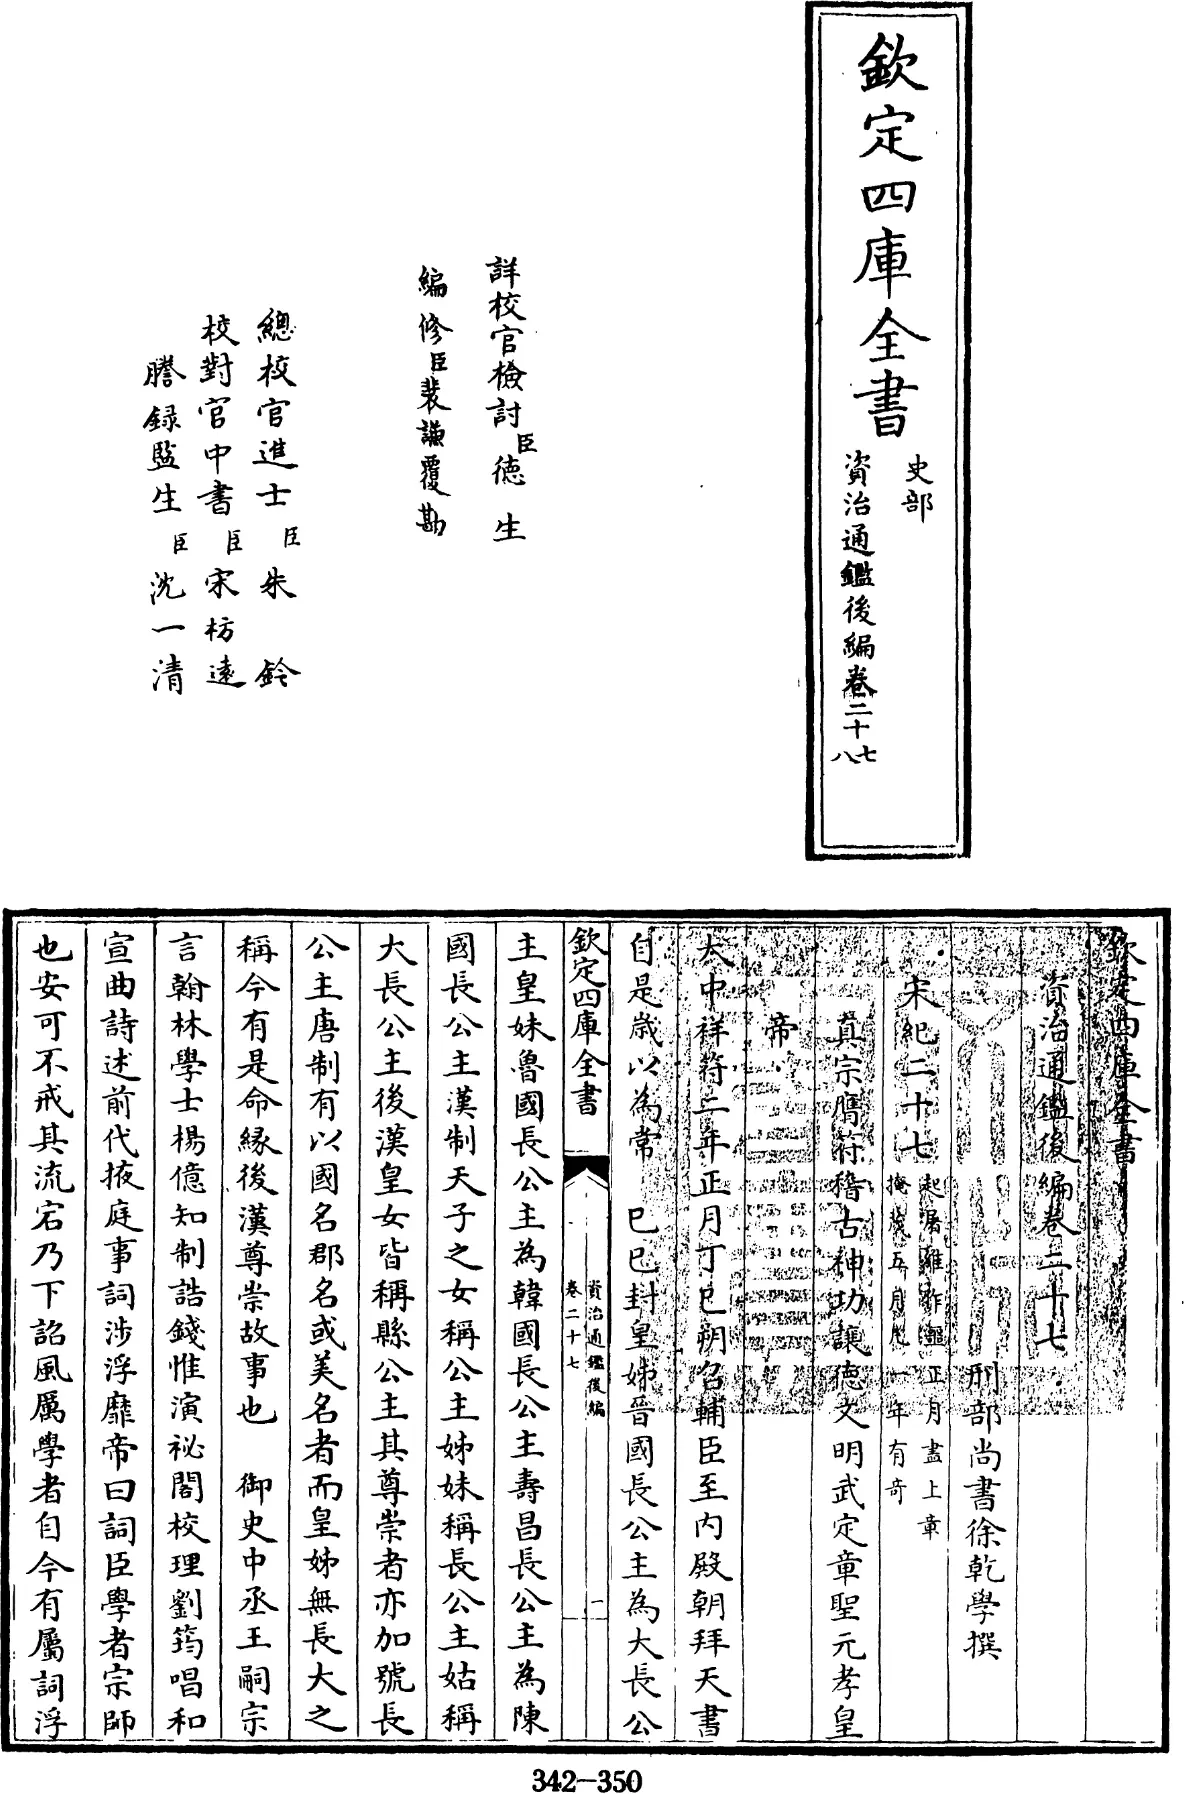 欽定四庫全書
史部
資治通鑑後編卷二十七
八
詳校官檢討臣德生
編修臣裴謙覆勘
總校官進士臣朱鈐
校對官中書臣宋枋遠
謄錄監生臣沈一清
欽定四庫全書
資治通鑑後編卷二十七
刑部尚書徐乾學撰
宋紀二十七
起屠維作噩正月盡上章
掩茂五月凡一年有奇
真宗膺符稽古神功讓德文明武定章聖元孝皇
帝
大中祥符二年正月丁巳朔召輔臣至內殿朝拜天書
自是歲以為常 己巳封皇姊晉國長公主為大長公
欽定四庫全書
資治通鑑後編
卷二十七
一
主皇妹魯國長公主為韓國長公主壽昌長公主為陳
國長公主漢制天子之女稱公主姊妹稱長公主姑稱
大長公主後漢皇女皆稱縣公主其尊崇者亦加號長
公主唐制有以國名郡名或美名者而皇姊無長大之
稱今有是命緣後漢尊崇故事也 御史中丞王嗣宗
言翰林學士楊億知制誥錢惟演祕閣校理劉筠唱和
宣曲詩述前代掖庭事詞涉浮靡帝曰詞臣學者宗師
也安可不戒其流宕乃下詔風厲學者自今有屬詞浮
342-350